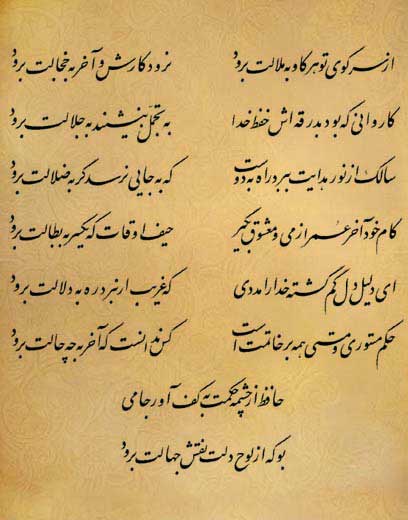 از سر کوی تو هر کاو به ملالت برود نرود کارش و آخر به خجالت برود
کاروانی که بود بدرقه اش حفظ خدا به تجمّل بنشیند به جلالت برود
سالک از نور هدایت ببرد راه به دوست که به جایی نرسد گر به ضلالت برود
کام خود آخر عمر از می و معشوق بگیر حیف اوقات که یکسر به بطالت برود
ای دلیل دل گم گشته خدا را مددی که غریب ار نبرد ره به دلالت برود
حکم مستوری و مستی همه بر خاتمت است کس ندانست که آخر به چه حالت برود
حافظ از چشمه حکمت به کف آور جامی
بو که از لوح دلت نقش جهالت برود